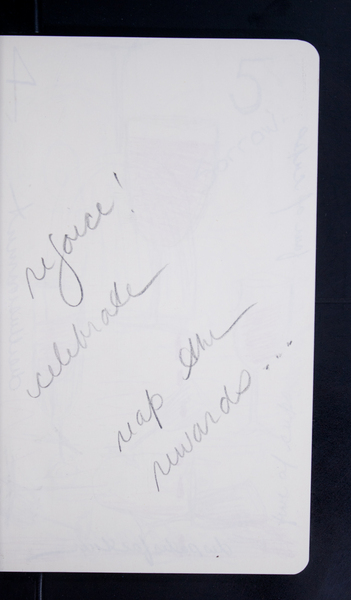 rejoice!
celebrate
reap the
rewards...